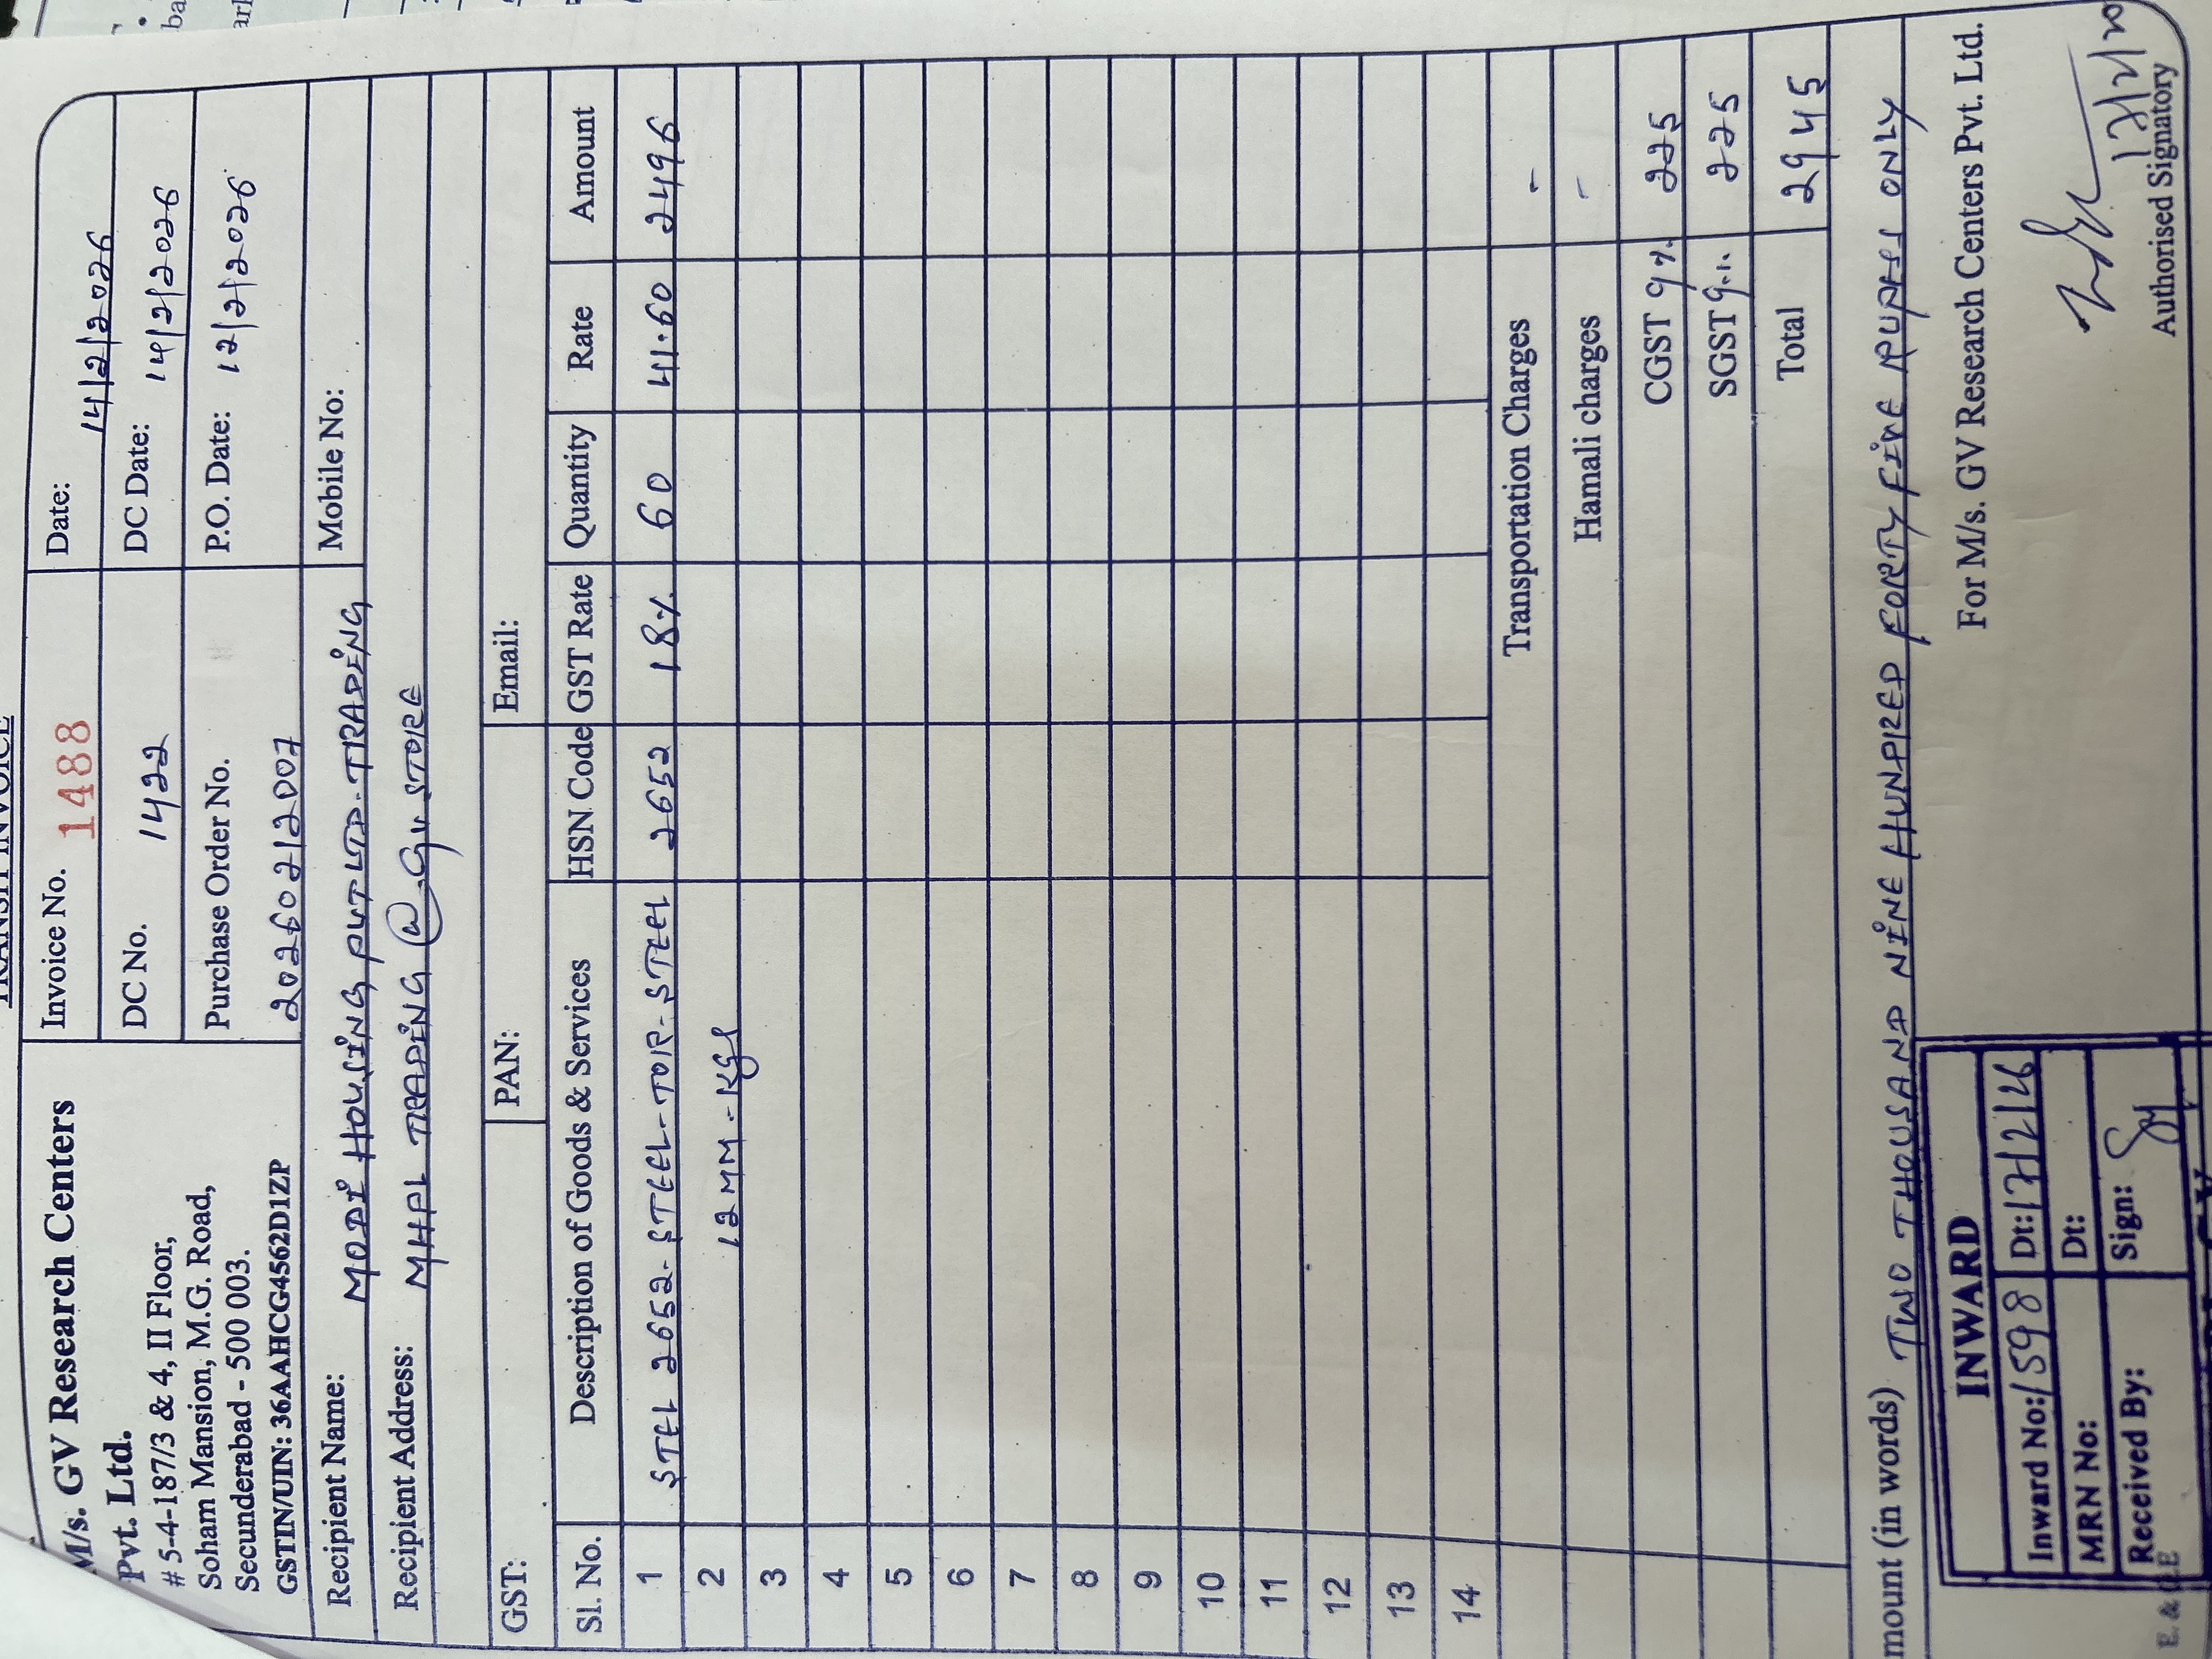 TRANSIT INVOICE
M/s. GV Research Centers
Pvt. Ltd.
# 5-4-187/3 & 4, II Floor,
Soham Mansion, M.G. Road,
Secunderabad - 500 003.
GSTIN/UIN: 36AAHCG4562D1ZP
Invoice No. 1488
Date: 14/2/2026
DC No. 1422
DC Date: 14/2/2026
Purchase Order No. 20260212007
P.O. Date: 12/2/2026
Recipient Name: MODI HOUSING PVT LTD. TRADING
Mobile No:
Recipient Address: MHPL TRADING @ GV STORE
GST: PAN: Email:
Sl. No. Description of Goods & Services HSN Code GST Rate Quantity Rate Amount
1 STEL 2652-STEEL-TOR-STEEL 2652 18% 60 41.60 2496
2 12MM-KGS
3
4
5
6
7
8
9
10
11
12
13
14
Transportation Charges -
Hamali charges -
CGST 9% 225
SGST 9% 225
Total 2945
mount (in words) TWO THOUSAND NINE HUNDRED FORTY FIVE RUPEES ONLY
For M/s. GV Research Centers Pvt. Ltd.
INWARD
Inward No: 1598 Dt: 17/2/26
MRN No: Dt:
Received By: Sign:
E. & O.E
Authorised Signatory